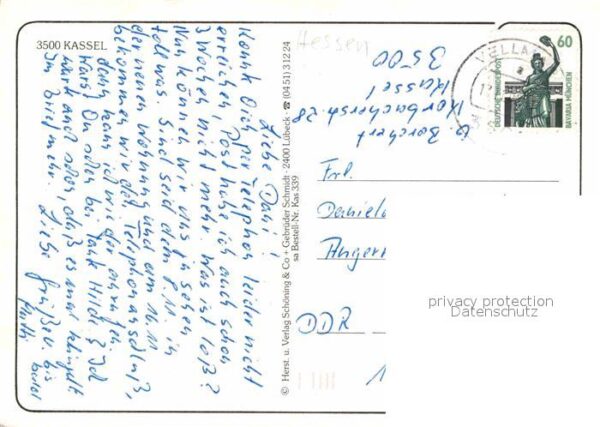 3500 KASSEL
Liebe Dani!
Konnte Dich per Telephon leider nicht
erreichen! Post habe ich auch schon
3 Wochen nicht mehr. Was ist los?
Nun können wir das ja sehen
toll was. Sind seid dem 8.11. in
der neuen Wohnung und am 16.11
bekommen wir den Telephonanschluß,
dann kann ich wieder anrufen
Hast Du oder bei Tante Hilde? Ich
, daß es mal klingelt
Im Brief mehr. Liebe Grüße u. bis
bald
© Herst. u. Verlag Schöning & Co + Gebrüder Schmidt · 2400 Lübeck · ☎ (04 51) 3 12 24
sa Bestell-Nr. Kas 339
Hessen
G. Borchert
Korbacherstr. 28
Kassel
3500
VELLMA
60
DEUTSCHE BUNDESPOST
BAVARIA MÜNCHEN
Frl.
Daniela
Anger
DDR
1
privacy protection
Datenschutz